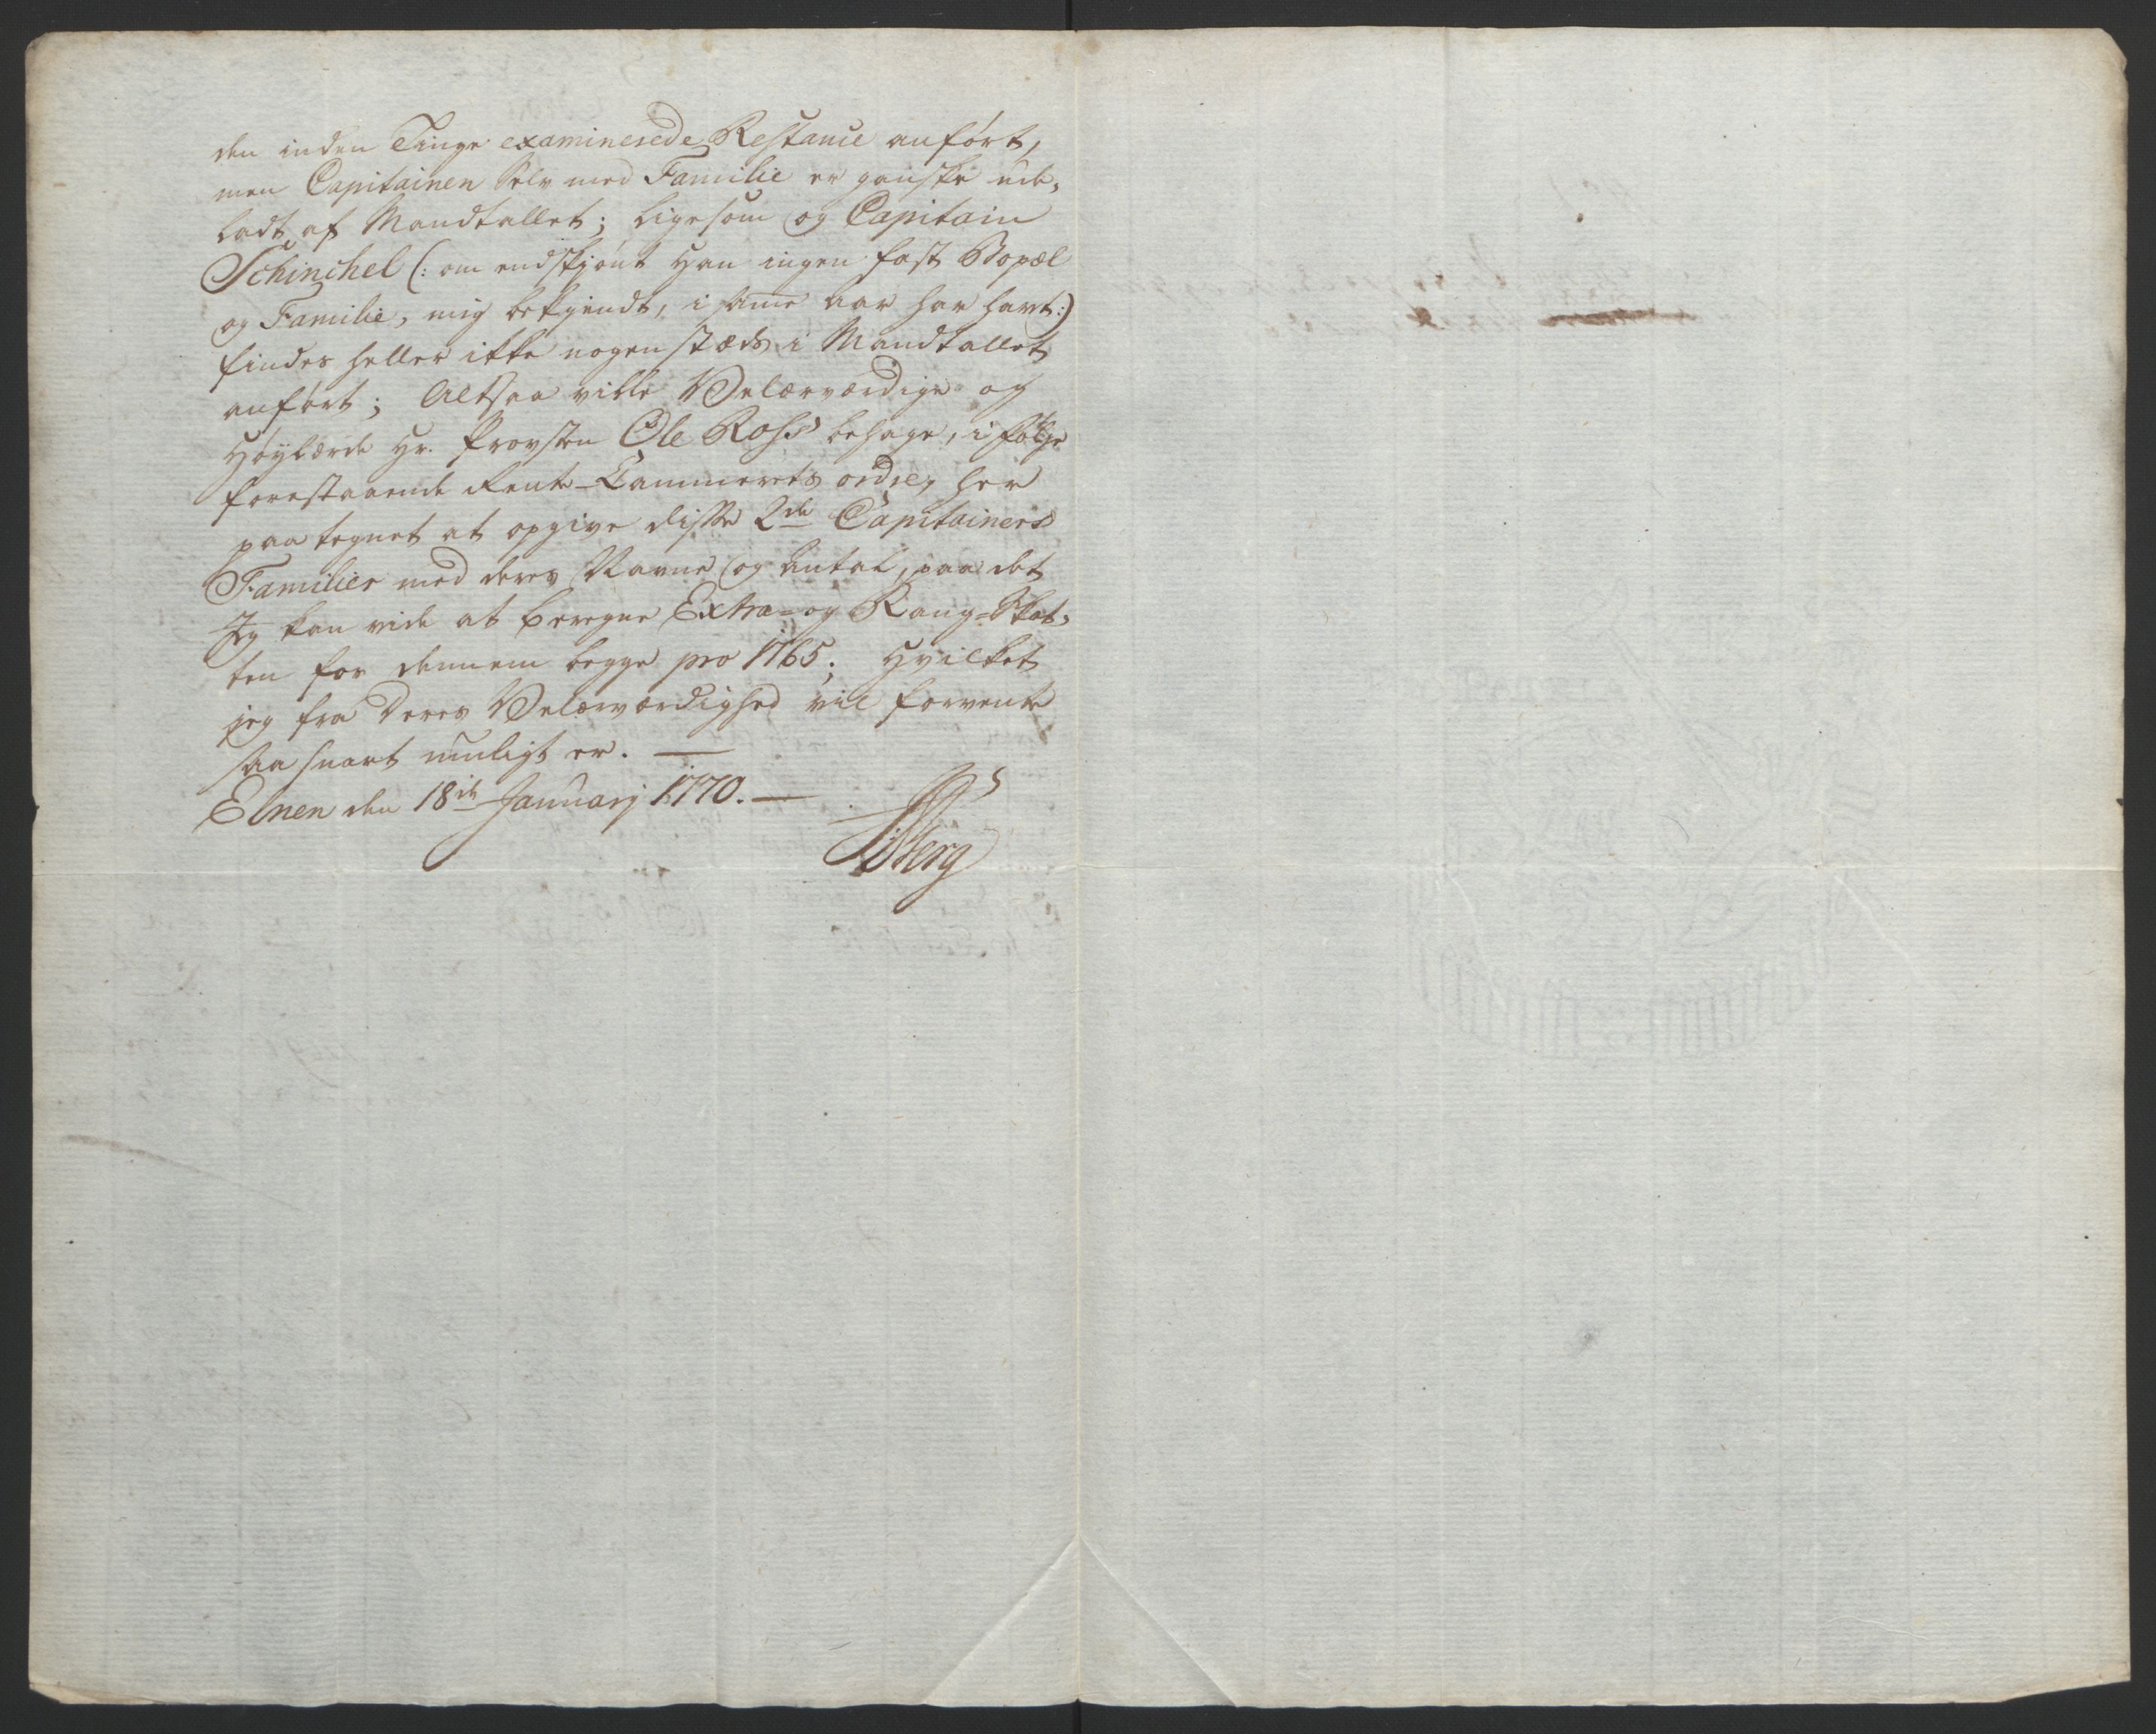 den inden Tinge examinerede Restance anført,
men Capitainen Selv med Familie er ganske ude,
ladt af Mandtallet; ligesom og Capitain
Schinchel (: om endskjønt Han ingen fast Bopæl
og Familie, mig bekjendt, i same aar har havt:)
findes heller ikke nogenstæds i Mandtallet
anført; Altsaa ville Velærværdige og
Høylærde Hr. Provsten Ole Ross behage, i følge
forestaaende Rente-Cammerets ordre, her
paa tegnet at opgive disse 2de Capitainers
Familier med deres Navne og Antal, paa det
Jeg kan vide at beregne Extra- og Rang-Skat,
ten for dennem begge pro 1765; Hvilket
jeg fra Deres Velærværdighed vil forvente
saa snart muligt er. —
Elnen den 18de Januarj 1770. —
Berg